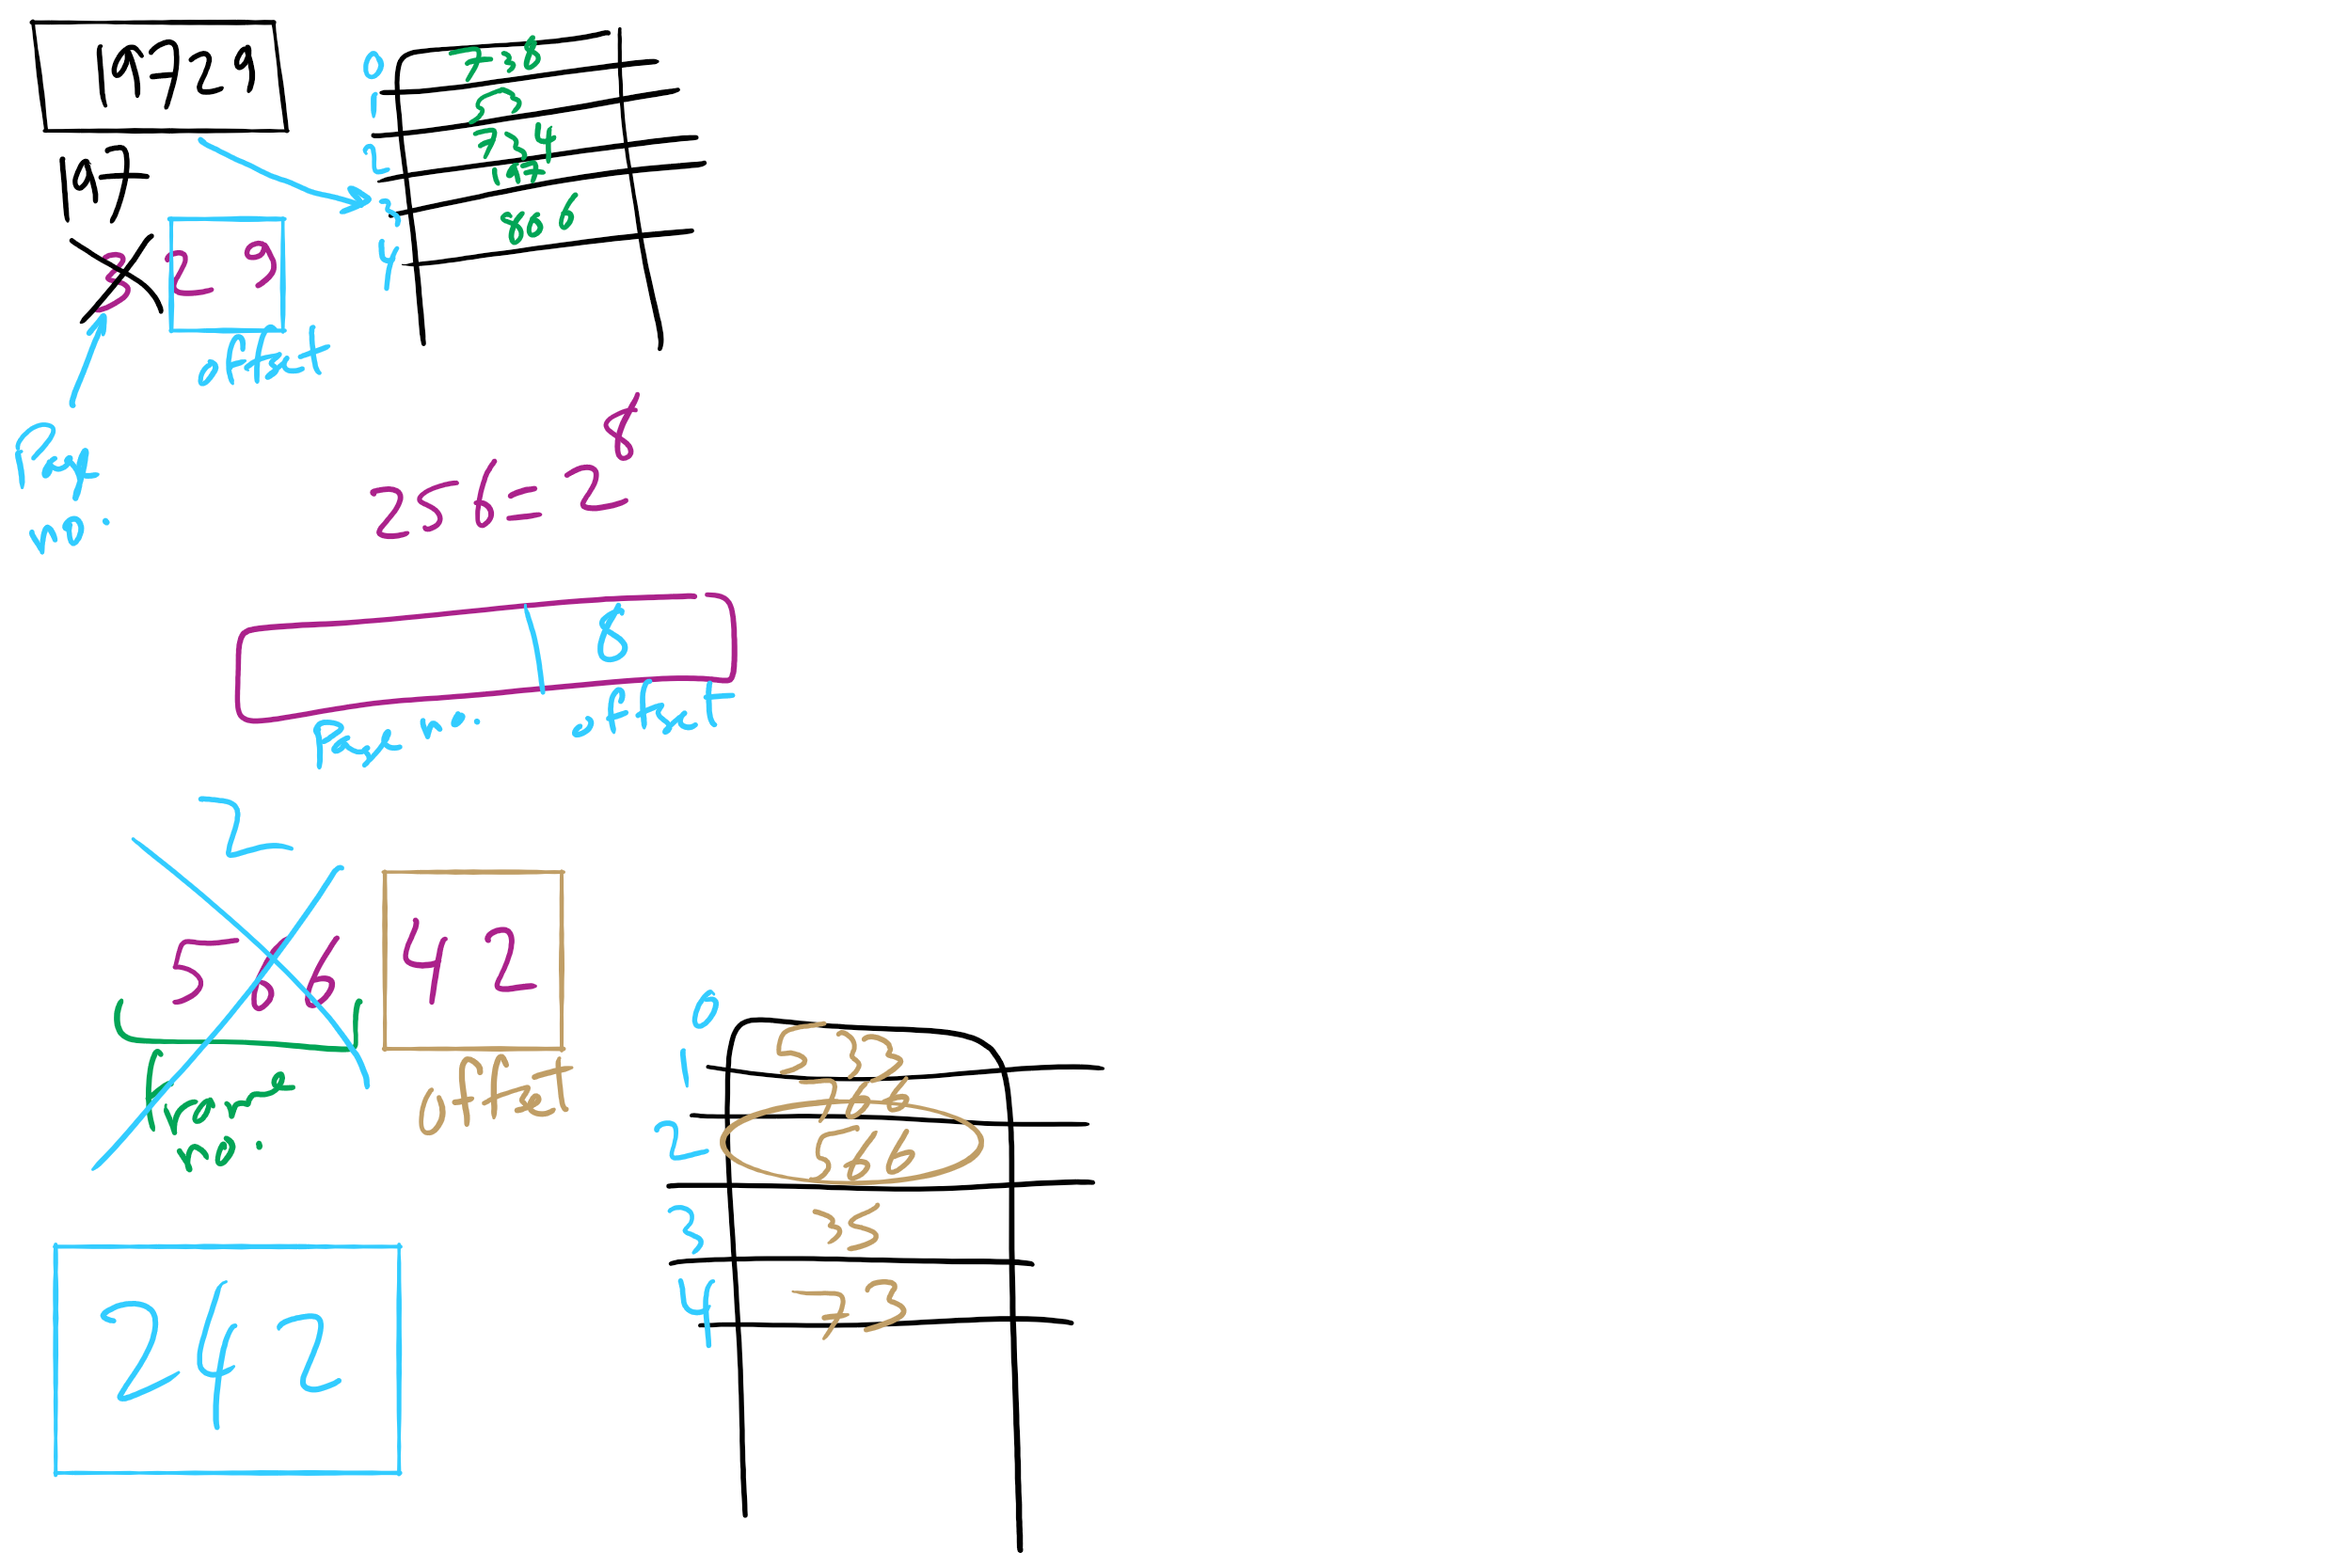 19729
197
3 29
offset
Page
no.
0 738
1 52
2 734
3 197
4 866
256=2^8
8
Page no. offset
2
566 42
Frame
no.
offset
242
0 533
1 766
2 566
3 35
4 73